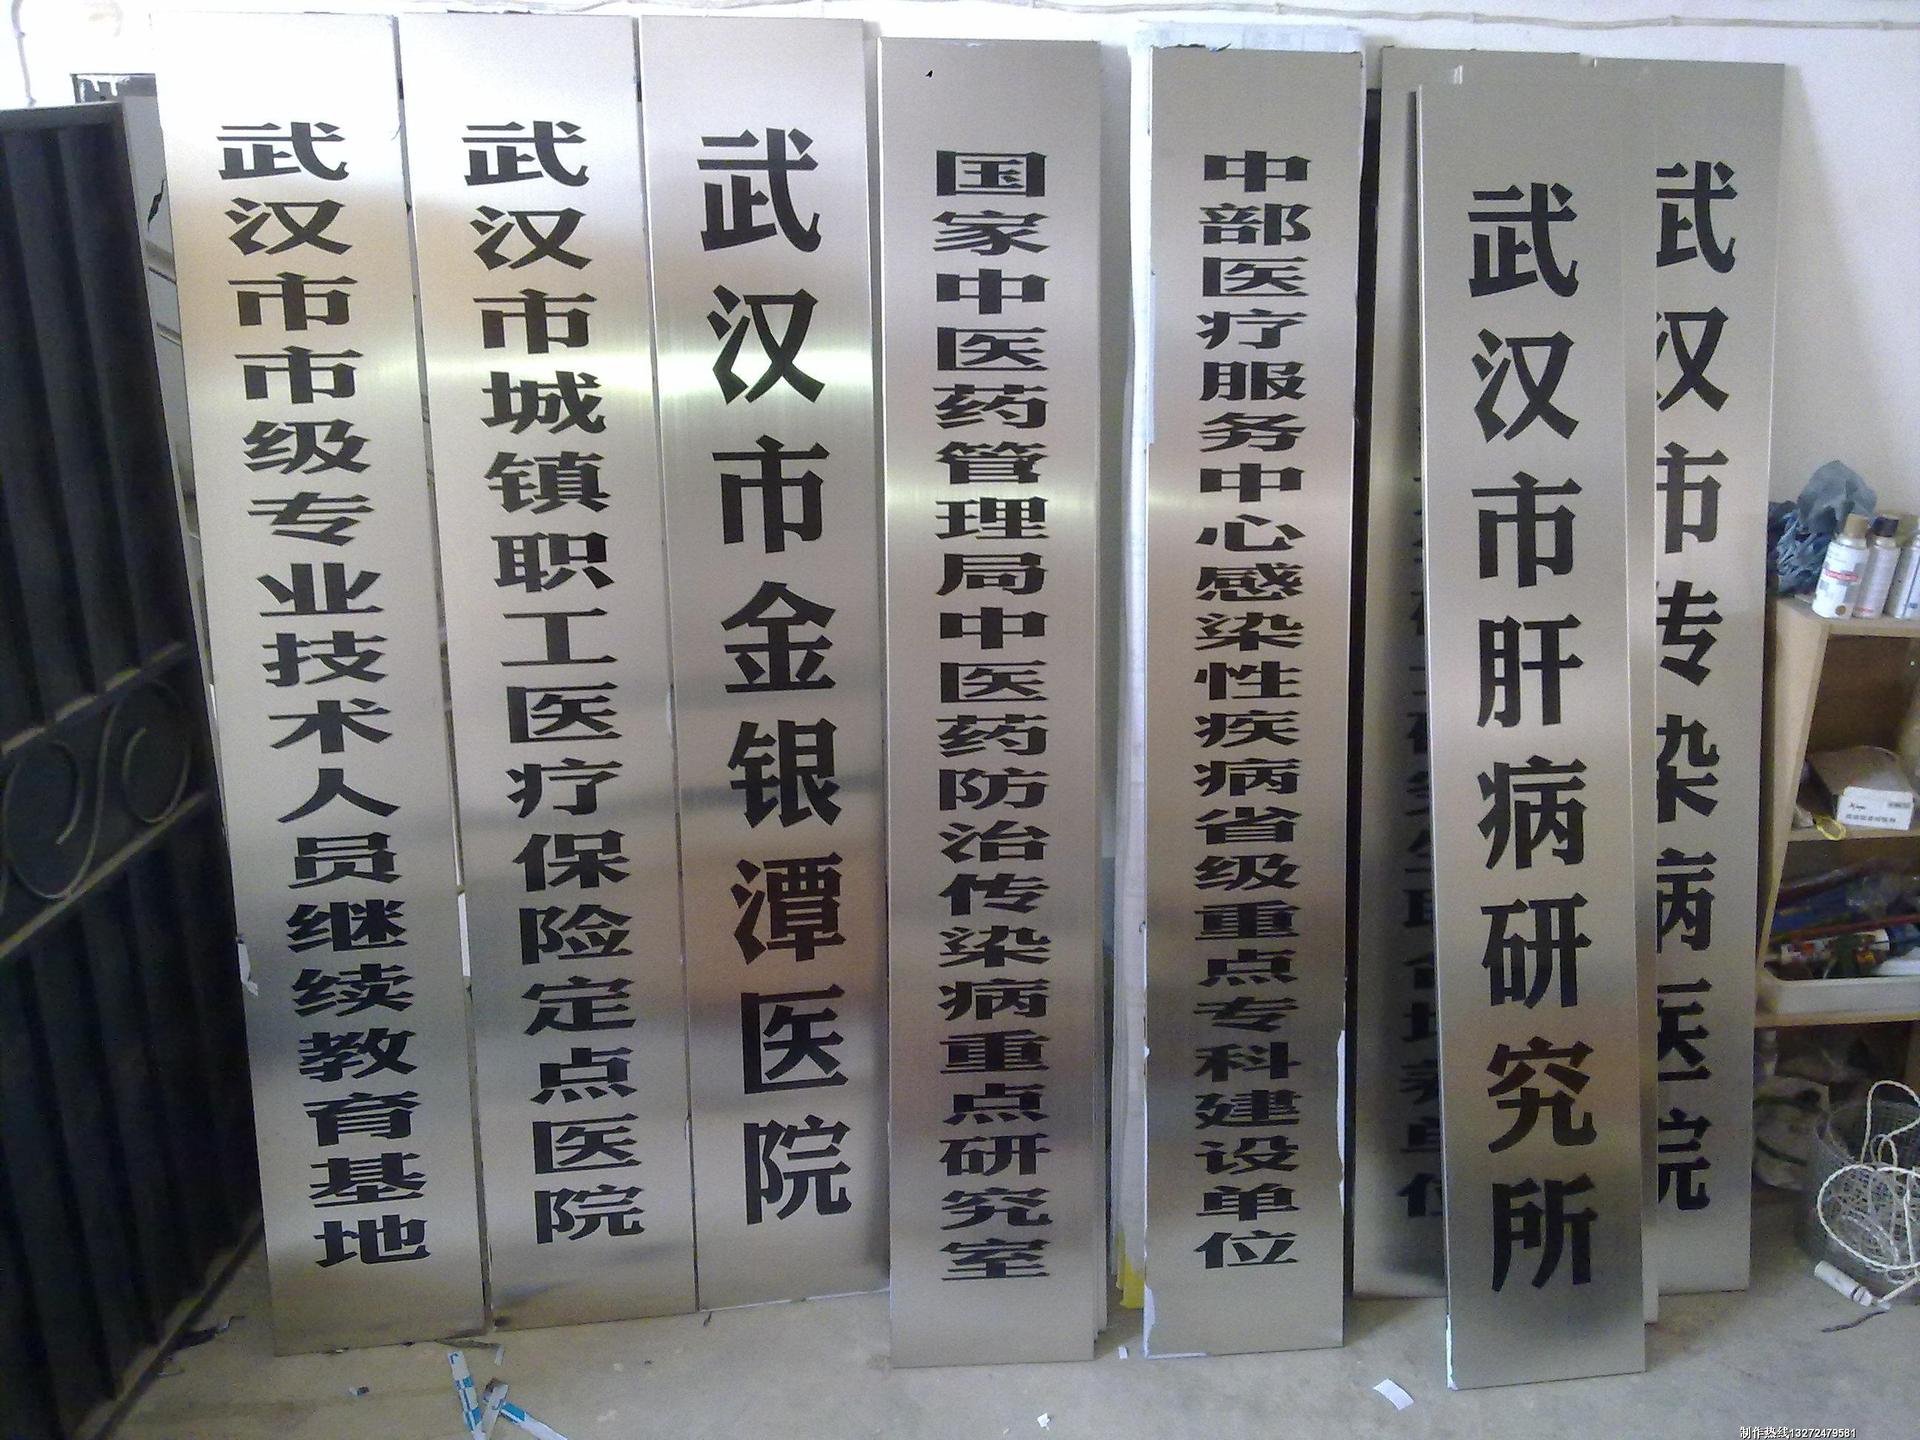 武汉市市级专业技术人员继续教育基地
武汉市城镇职工医疗保险定点医院
武汉市金银潭医院
国家中医药管理局中医药防治传染病重点研究室
中部医疗服务中心感染性疾病省级重点专科建设单位
武汉市肝病研究所
武汉市传染病医院
制作热线13272479581